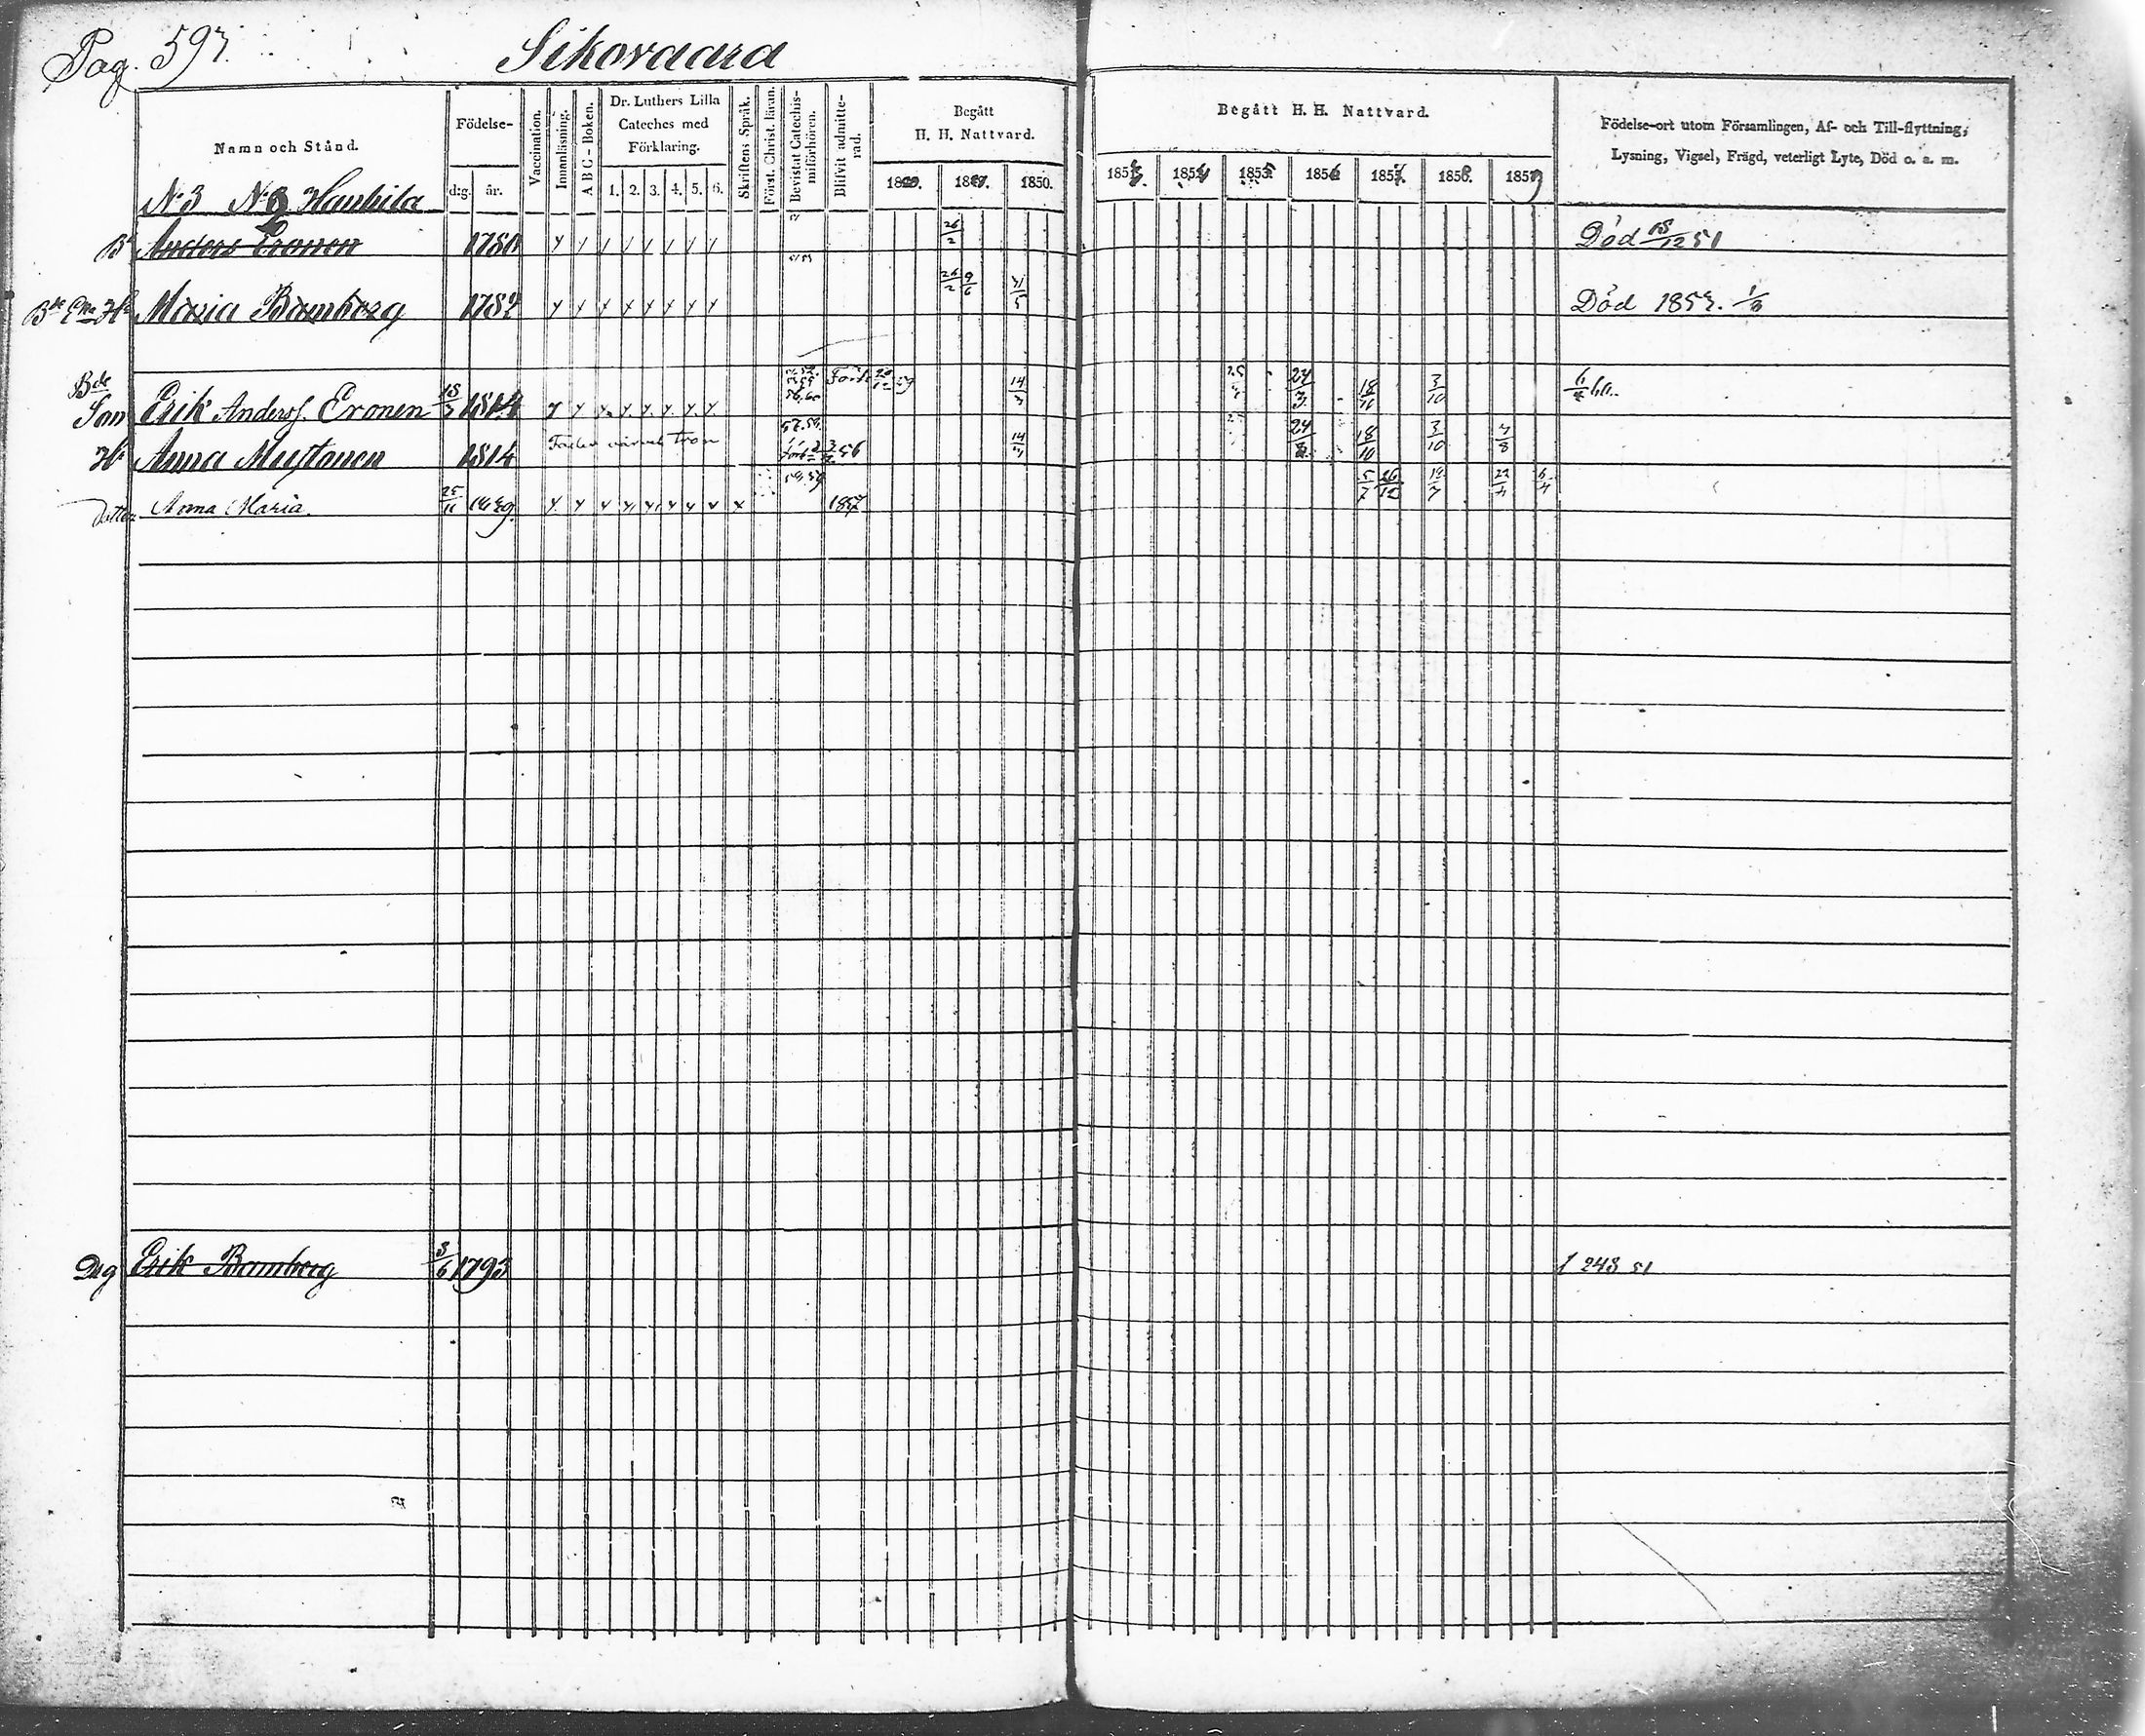 Pag. 597.
Sikovaara
Namn och Stånd.
Födelse-
d:g. år.
Vaccination.
Innanläsning.
A B C - Boken.
Dr. Luthers Lilla
Cateches med
Förklaring.
1. 2. 3. 4. 5. 6.
Skriftens Språk.
Först. Christ. läran.
Bevistat Catechis-
miförhören.
Blifvit admitte-
rad.
Begått
H. H. Nattvard.
1850.
Begått H. H. Nattvard.
1853. 1854 1855 1856 1857. 1858. 1859
Födelse-ort utom Församlingen, Af- och Till-flyttning,
Lysning, Vigsel, Frägd, veterligt Lyte, Död o. a. m.
N:3 N:2 Haukila
Anders Eronen 1780 26/2 Död 18/12 51
Maria Bamberg 26/2 9/6 Död
Bde
Son Erik Anders. Eronen 18/7 1814 14/3 24/3 18/10 3/10
Anna Mustonen 1814 56 14/3 24/3 18/10 3/10
Dotter Anna Maria. 25/11 1839 1857 5/7 26/12 19/7 22/4
Erik Bamberg 3/6 1793 248 51